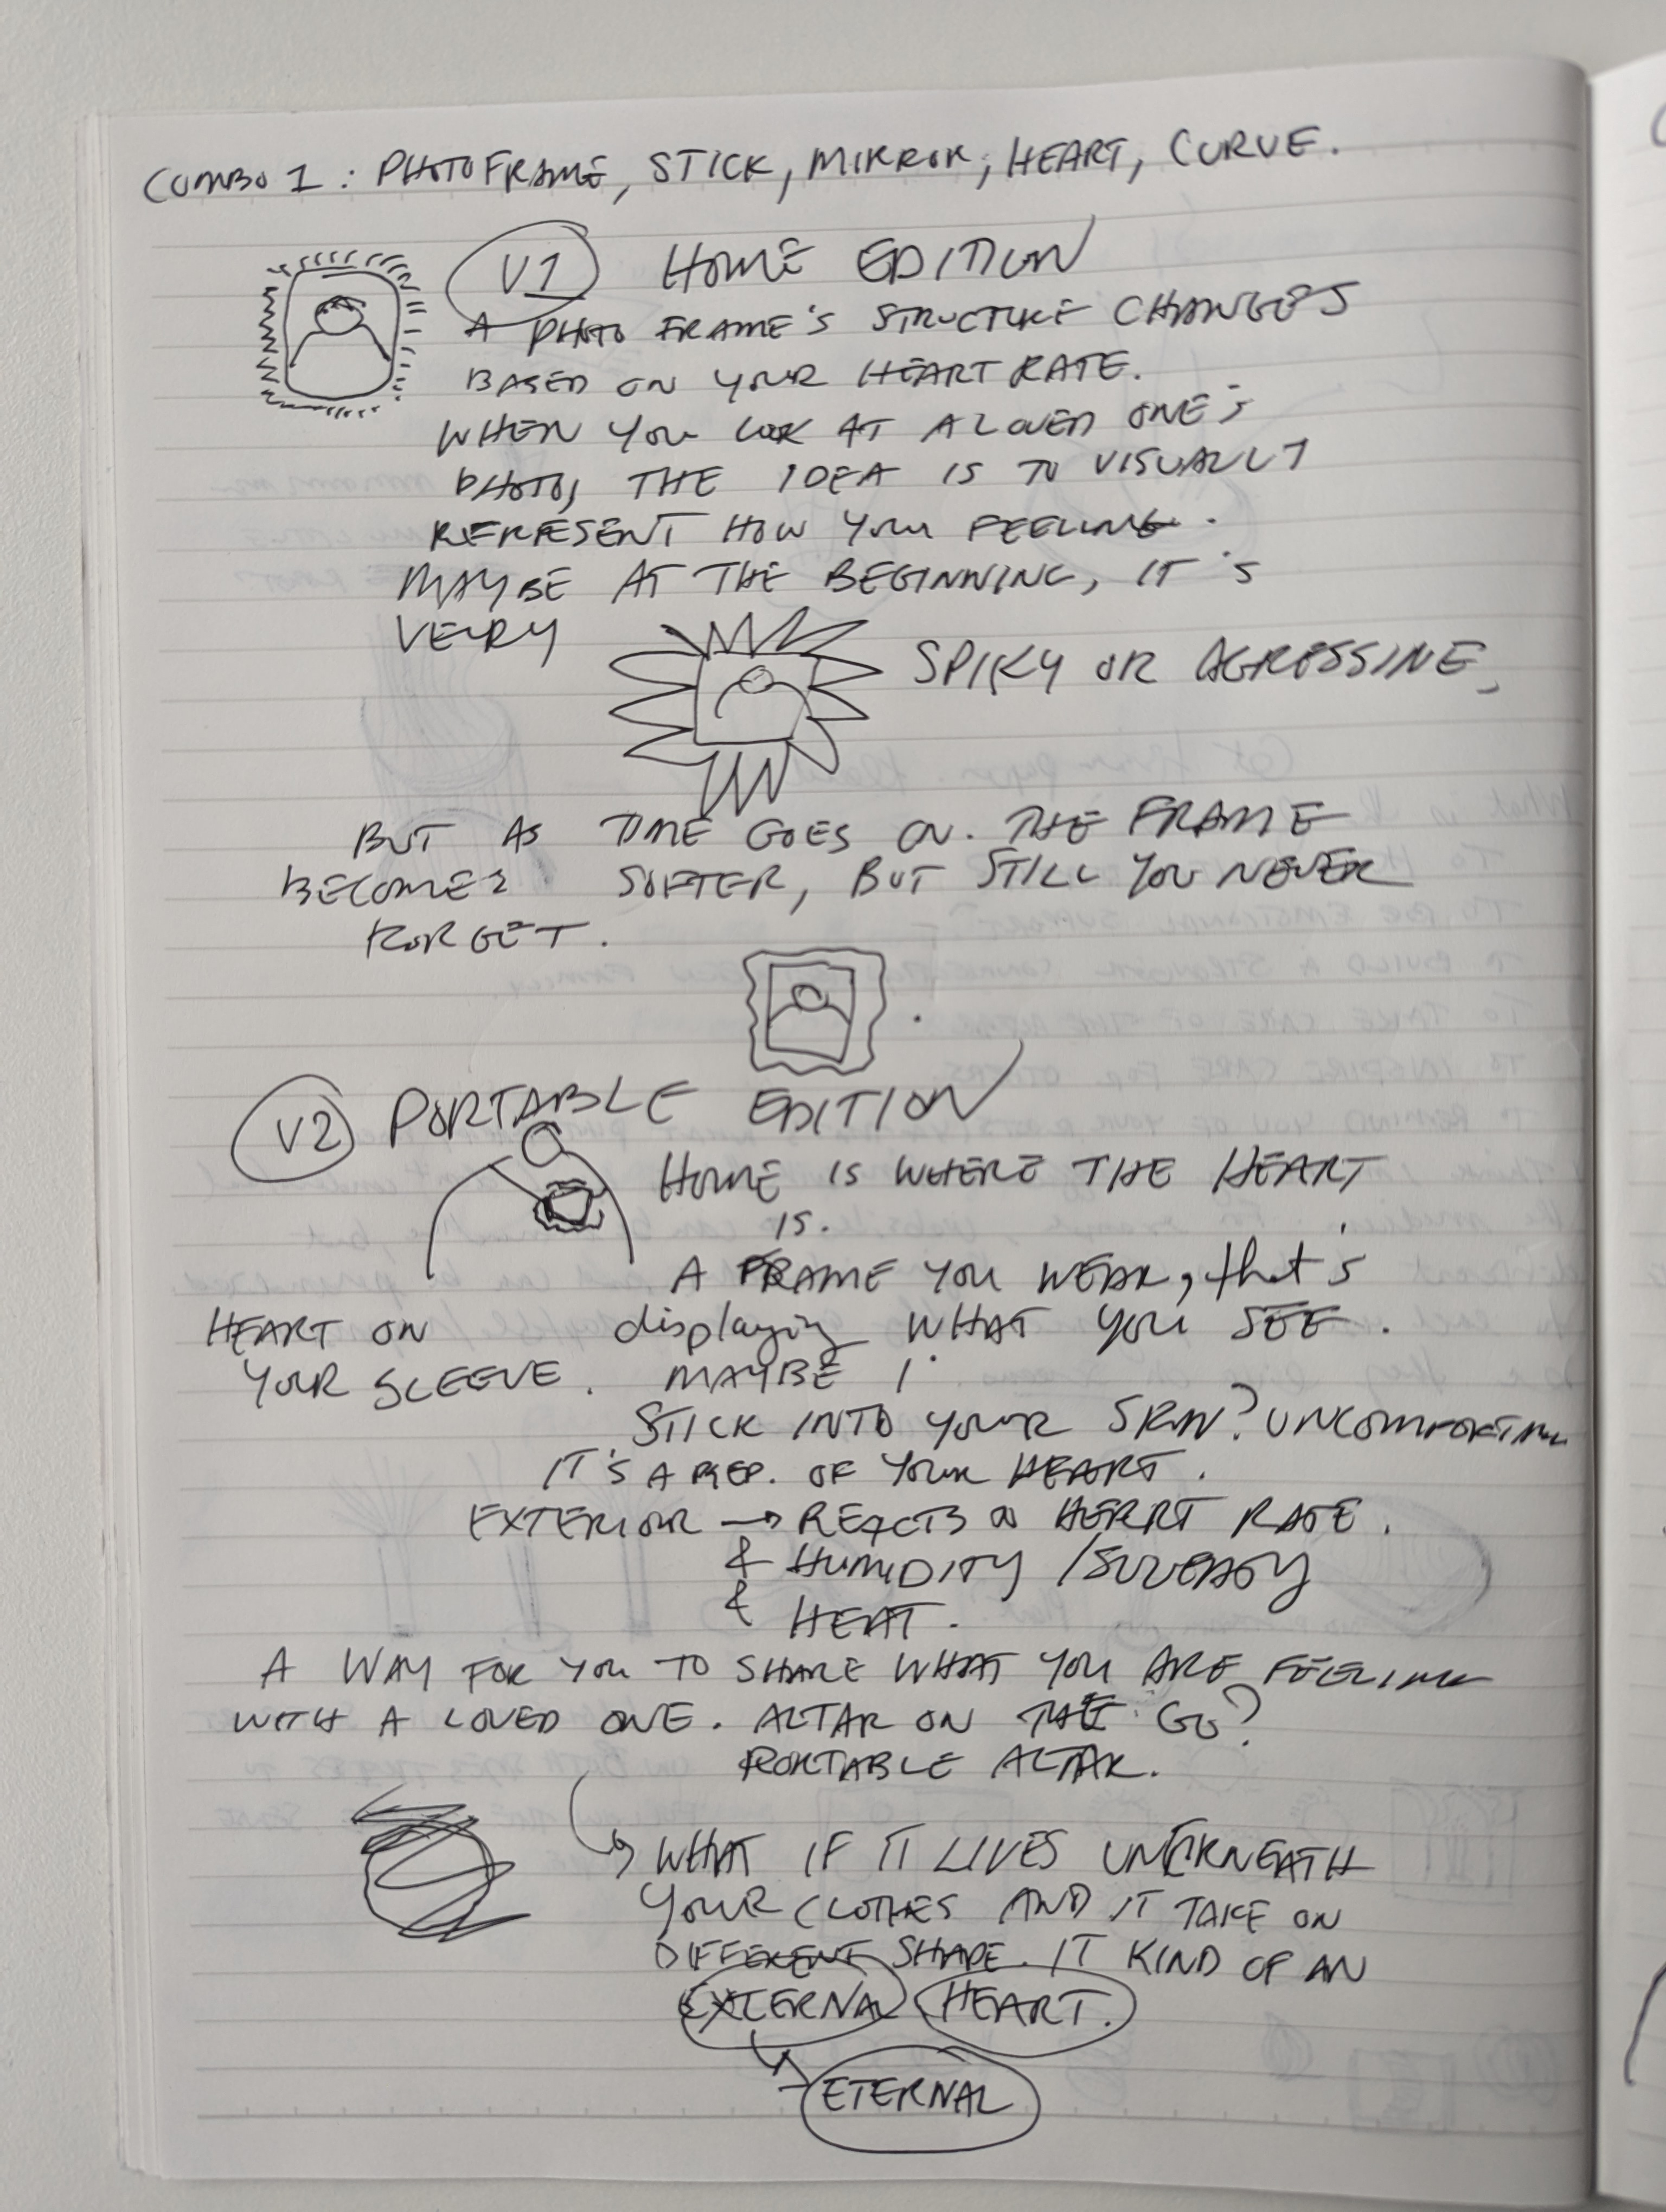 COMBO 1: PHOTOFRAME, STICK, MIRROR, HEART, CURVE.
V1 HOME EDITION
A PHOTO FRAME'S STRUCTURE CHANGES
BASED ON YOUR HEART RATE.
WHEN YOU LOOK AT A LOVED ONE'S
PHOTO, THE IDEA IS TO VISUALLY
REPRESENT HOW YOU FEELING.
MAYBE AT THE BEGINNING, IT'S
VERY SPIKY OR AGRESSIVE,
BUT AS TIME GOES ON. THE FRAME
BECOMES SOFTER, BUT STILL YOU NEVER
FORGET.
V2 PORTABLE EDITION
HOME IS WHERE THE HEART
IS.
A FRAME YOU WEAR, that's
displaying WHAT YOU SEE.
HEART ON
YOUR SLEEVE.
MAYBE I
STICK INTO YOUR SKIN? UNCOMFORTABLE
IT'S A REP. OF YOUR HEART.
EXTERIOR → REACTS ON HEART RATE.
& HUMIDITY / SWEATY
& HEAT.
A WAY FOR YOU TO SHARE WHAT YOU ARE FEELING
WITH A LOVED ONE. ALTAR ON THE GO?
PORTABLE ALTAR.
WHAT IF IT LIVES UNDERNEATH
YOUR CLOTHES AND IT TAKE ON
DIFFERENT SHAPE. IT KIND OF AN
EXTERNAL HEART.
ETERNAL